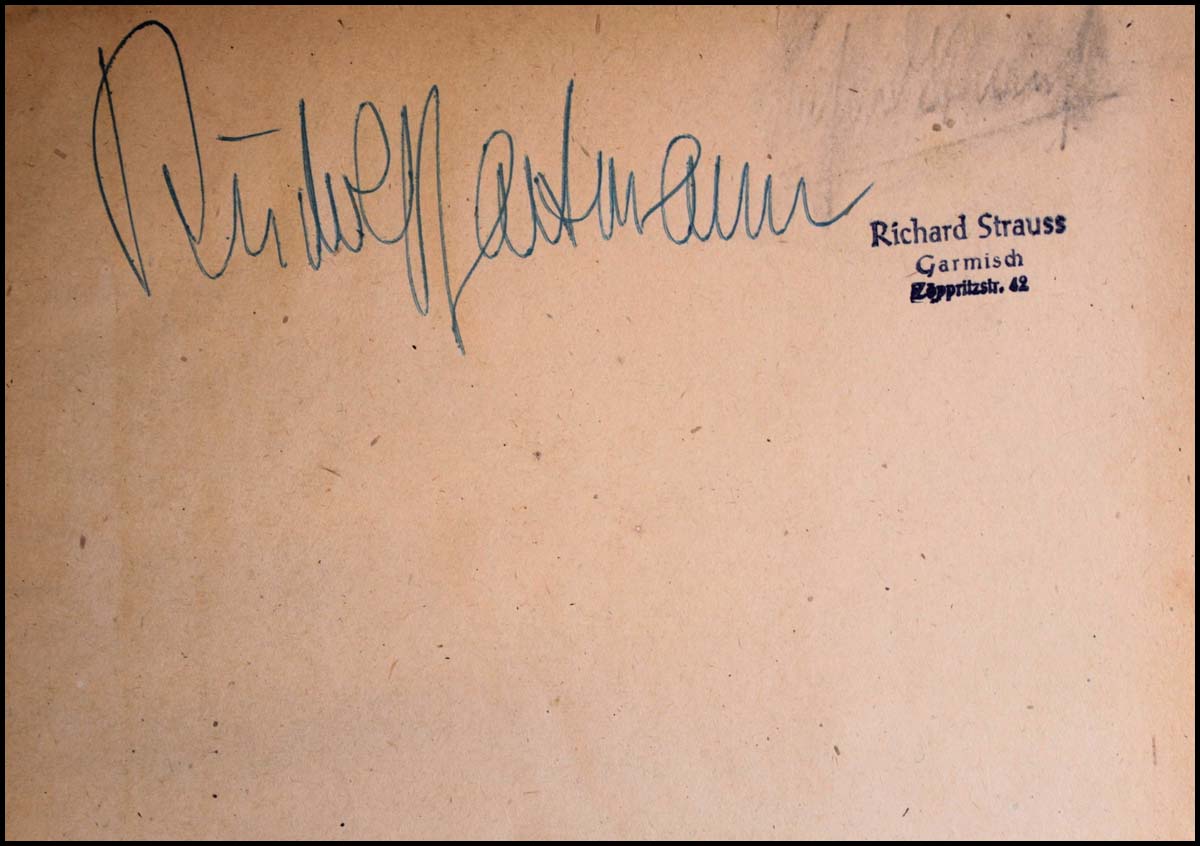 Rudolf Hartmann
Richard Strauss
Garmisch
Zöppritzstr. 42